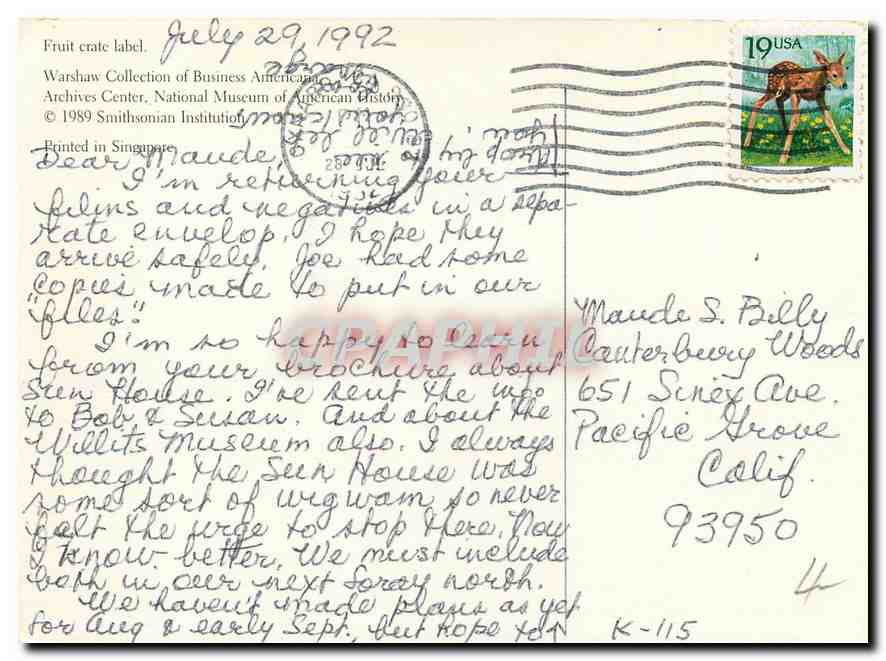 Fruit crate label.
July 29, 1992
Warshaw Collection of Business Americana
Archives Center, National Museum of American History
© 1989 Smithsonian Institution
Printed in Singapore
19 USA
Dear Maude,
I'm returning your
films and negatives in a sepa-
rate envelop. I hope they
arrive safely. Joe had some
copies made to put in our
"files."
I'm so happy to learn
from your brochure about
Sun House. I've sent the info
to Bob & Susan. And about the
Willits Museum also. I always
thought the Sun House was
some sort of wigwam so never
felt the urge to stop there. Now
I know better. We must include
both in our next foray north.
We haven't made plans as yet
for Aug & early Sept., but hope to
stop by to see
you. Will let
you know
Marge
Maude S. Billy
Canterbury Woods
651 Sinex Ave.
Pacific Grove
Calif.
93950
4
K-115
CPAPHIL